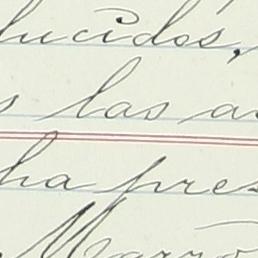 lucidos,
s las a
ha pres
Marzo